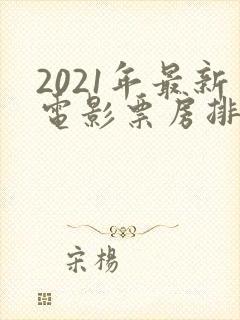 2021年最新
电影票房排
宋楊